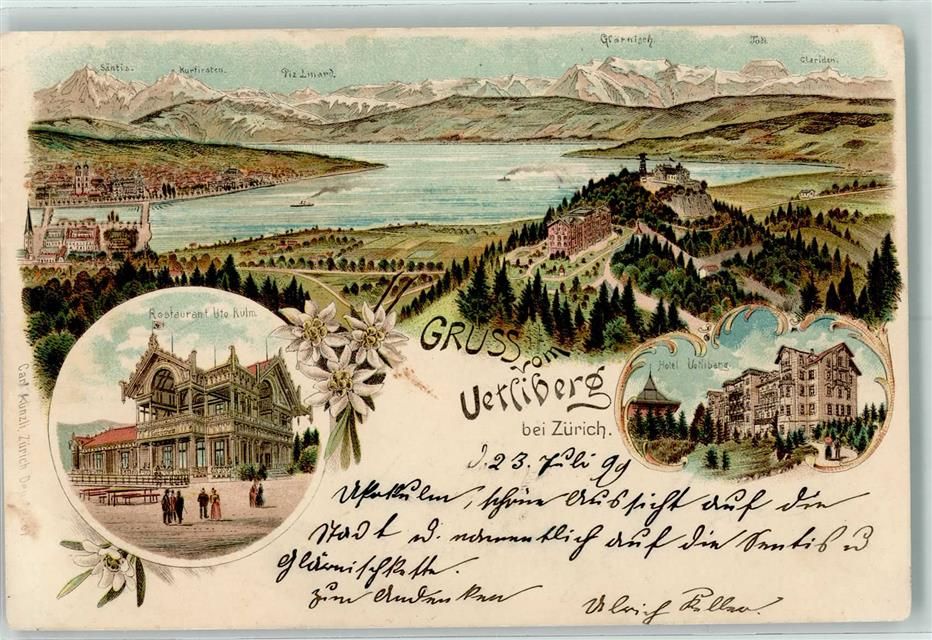 Säntis.
Kurfirsten.
Piz Linard.
Glärnisch
Tödi.
Clariden.
Restaurant Uto Kulm
GRUSS vom
Uetliberg
bei Zürich.
Hotel Uetliberg
Carl Künzli, Zürich
d. 23. Juli 99
Utokulm, schöne Aussicht auf die
Stadt u. namentlich auf die Sentis u
Glärnischkette.
zum Andenken
Ulrich Keller.